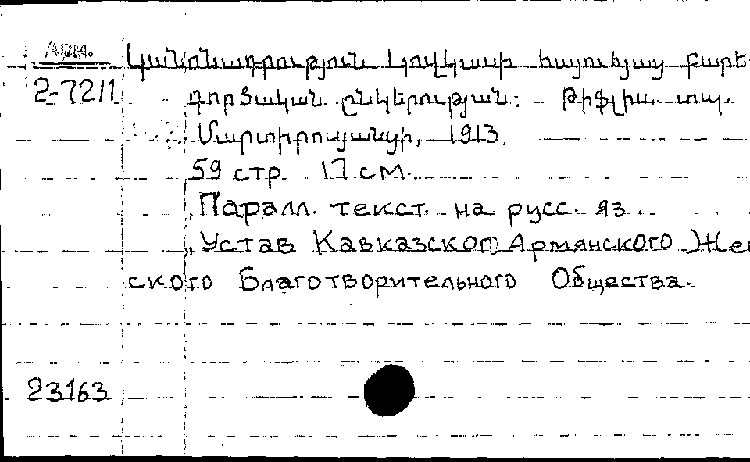 Арм.
Կանոնադրություն Կովկասի հայուհյաց բարե-
2-7211
գործական ընկերության: - Թիֆլիս. տպ.
Մարտիրոսյանցի, 1913.
59 стр. 17 см.
Паралл. текст на русс. яз.
Устав Кавказского Армянского Жен
ского Благотворительного Общества.
23163